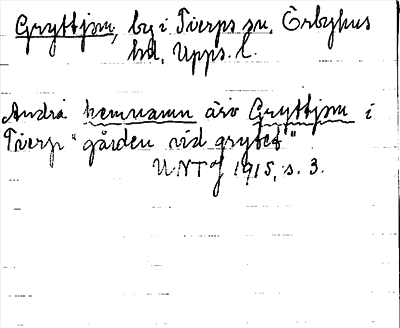 Gryttjom, by i Tierps sn, Örbyhus
hd, Upps. l.
Andra hemnamn äro Gryttjom i
Tierp "gården vid grytet"
UNTJ 1915, s. 3.